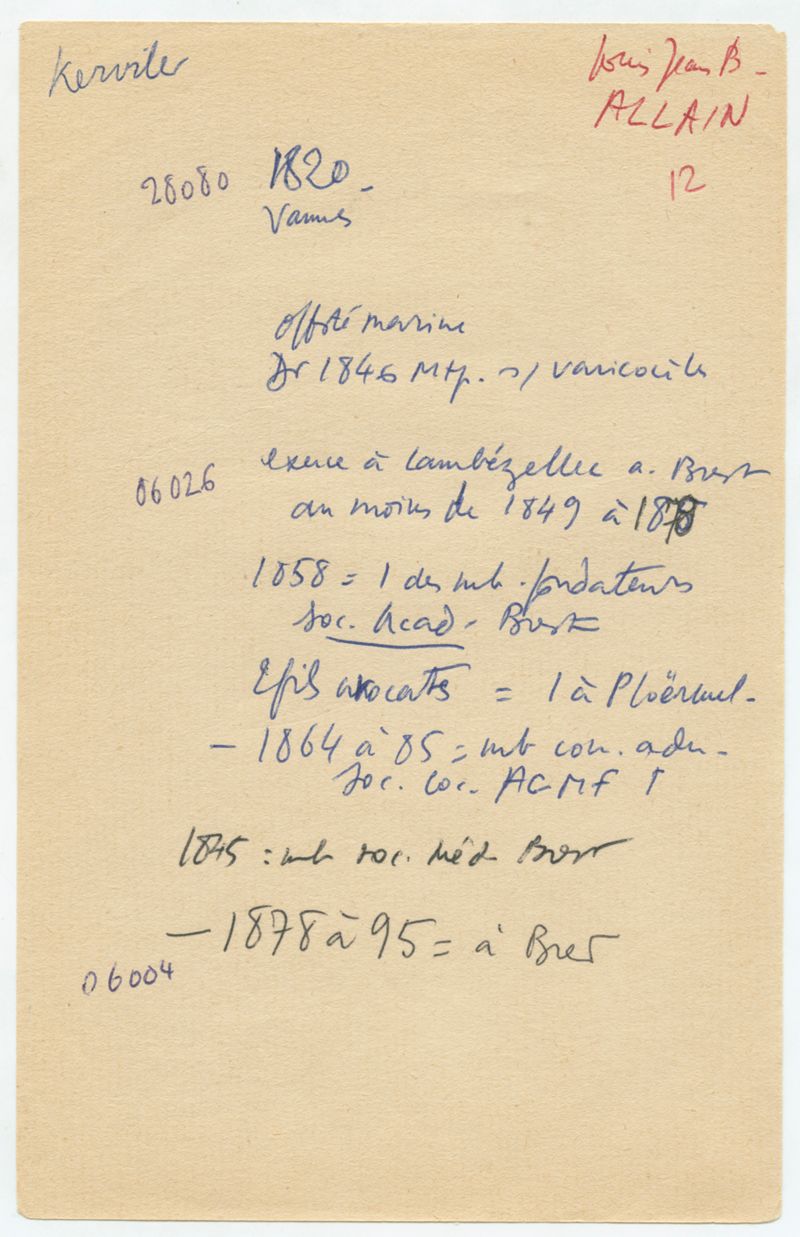 Kerviler
Louis Jean B.
ALLAIN
12
28080 1820.
Vannes
offsté marine
Dr 1846 Mtp. s/ varicocèles
exerce à Lambézellec a. Brest
06026
au moins de 1849 à 1878
1858 = 1 des mb. fondateurs
Soc. Acad. Brest
2 fils avocats = 1 à Ploërmel.
- 1864 à 85 = mb con. adm.
Soc. loc. AGMF
1845 : mb soc. Méd. Brest
- 1878 à 95 = à Brest
06004